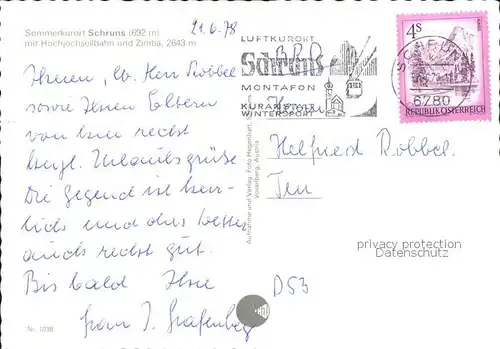 Sommerkurort Schruns (692 m)
mit Hochjochseilbahn und Zimba, 2643 m
21.6.78
Ihnen, lb. Herr Röbbel
sowie Ihren Eltern
von hier recht
herzl. Urlaubsgrüße
Die Gegend ist herr-
lich und das Wetter
auch recht gut.
Bis bald Ihre
Frau J. Grafenberg
Nr. 1038
Aufnahme und Verlag: Foto
Vorarlberg, Austria
LUFTKURORT
Schruns
MONTAFON
KURANSTALT
WINTERSPORT
BRD
Herrn
SCHRUNS
6780
4S
REPUBLIK ÖSTERREICH
Helfried Röbbel
D53
privacy protection
Datenschutz